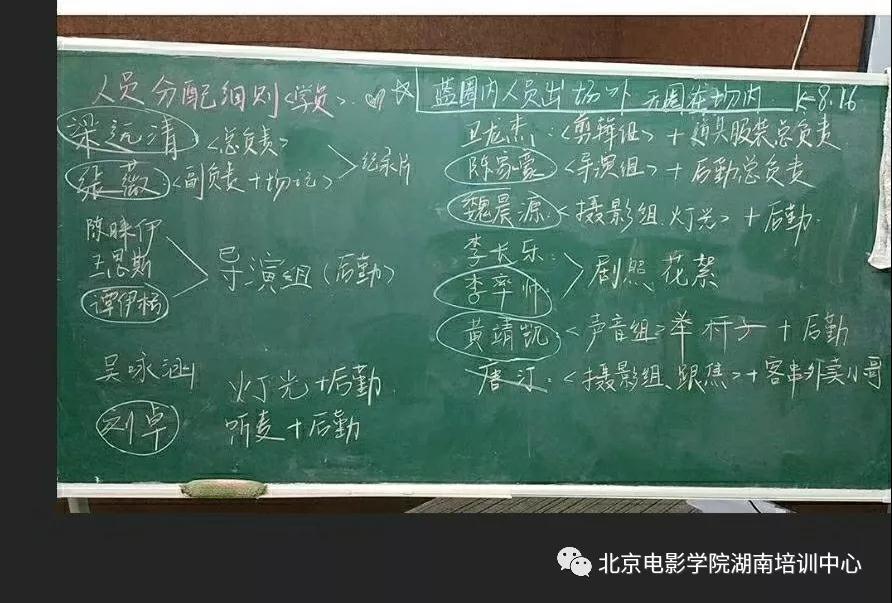 人员分配细则<学员>
梁远清 <总负责>
张薇:<副负责+场记>
纪录片
陈睐伊
王思斯
谭伊楠
导演组(后勤)
吴咏涵 灯光+后勤
刘卓 听麦+后勤
蓝圈内人员出场外 无圈在场内 8.16
卫龙杰:<剪辑组>+道具服装总负责
陈易震<导演组>+后勤总负责
魏晨源<摄影组.灯光>+后勤.
李长乐:
李率帅:
剧照 花絮
黄靖凯:<声音组>举杆子+后勤
唐汀:<摄影组、跟焦>+客串外卖小哥
北京电影学院湖南培训中心